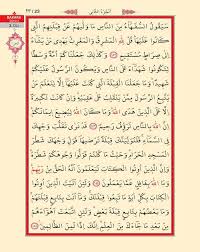 BAKARA
سَيَقُولُ السُّفَهَاءُ مِنَ النَّاسِ مَا وَلّٰيهُمْ عَنْ قِبْلَتِهِمُ الَّتِي
كَانُوا عَلَيْهَا قُلْ لِلّٰهِ الْمَشْرِقُ وَالْمَغْرِبُ يَهْدِي مَنْ يَشَاءُ
اِلٰى صِرَاطٍ مُسْتَقِيمٍ وَكَذٰلِكَ جَعَلْنَاكُمْ اُمَّةً وَسَطًا
لِتَكُونُوا شُهَدَاءَ عَلَى النَّاسِ وَيَكُونَ الرَّسُولُ عَلَيْكُمْ
شَهِيدًا وَمَا جَعَلْنَا الْقِبْلَةَ الَّتِي كُنْتَ عَلَيْهَا اِلَّا لِنَعْلَمَ
مَنْ يَتَّبِعُ الرَّسُولَ مِمَّنْ يَنْقَلِبُ عَلٰى عَقِبَيْهِ وَاِنْ كَانَتْ
لَكَبِيرَةً اِلَّا عَلَى الَّذِينَ هَدَى اللّٰهُ وَمَا كَانَ اللّٰهُ لِيُضِيعَ
اِيمَانَكُمْ اِنَّ اللّٰهَ بِالنَّاسِ لَرَؤُفٌ رَحِيمٌ قَدْ نَرٰى تَقَلُّبَ وَجْهِكَ
فِي السَّمَاءِ فَلَنُوَلِّيَنَّكَ قِبْلَةً تَرْضٰيهَا فَوَلِّ وَجْهَكَ شَطْرَ
الْمَسْجِدِ الْحَرَامِ وَحَيْثُ مَا كُنْتُمْ فَوَلُّوا وُجُوهَكُمْ شَطْرَهُ
وَاِنَّ الَّذِينَ اُوتُوا الْكِتَابَ لَيَعْلَمُونَ اَنَّهُ الْحَقُّ مِنْ رَبِّهِمْ
وَمَا اللّٰهُ بِغَافِلٍ عَمَّا يَعْمَلُونَ وَلَئِنْ اَتَيْتَ الَّذِينَ اُوتُوا
الْكِتَابَ بِكُلِّ اٰيَةٍ مَا تَبِعُوا قِبْلَتَكَ وَمَا اَنْتَ بِتَابِعٍ قِبْلَتَهُمْ
وَمَا بَعْضُهُمْ بِتَابِعٍ قِبْلَةَ بَعْضٍ وَلَئِنِ اتَّبَعْتَ اَهْوَاءَهُمْ
مِنْ بَعْدِ مَا جَاءَكَ مِنَ الْعِلْمِ اِنَّكَ اِذًا لَمِنَ الظَّالِمِينَ